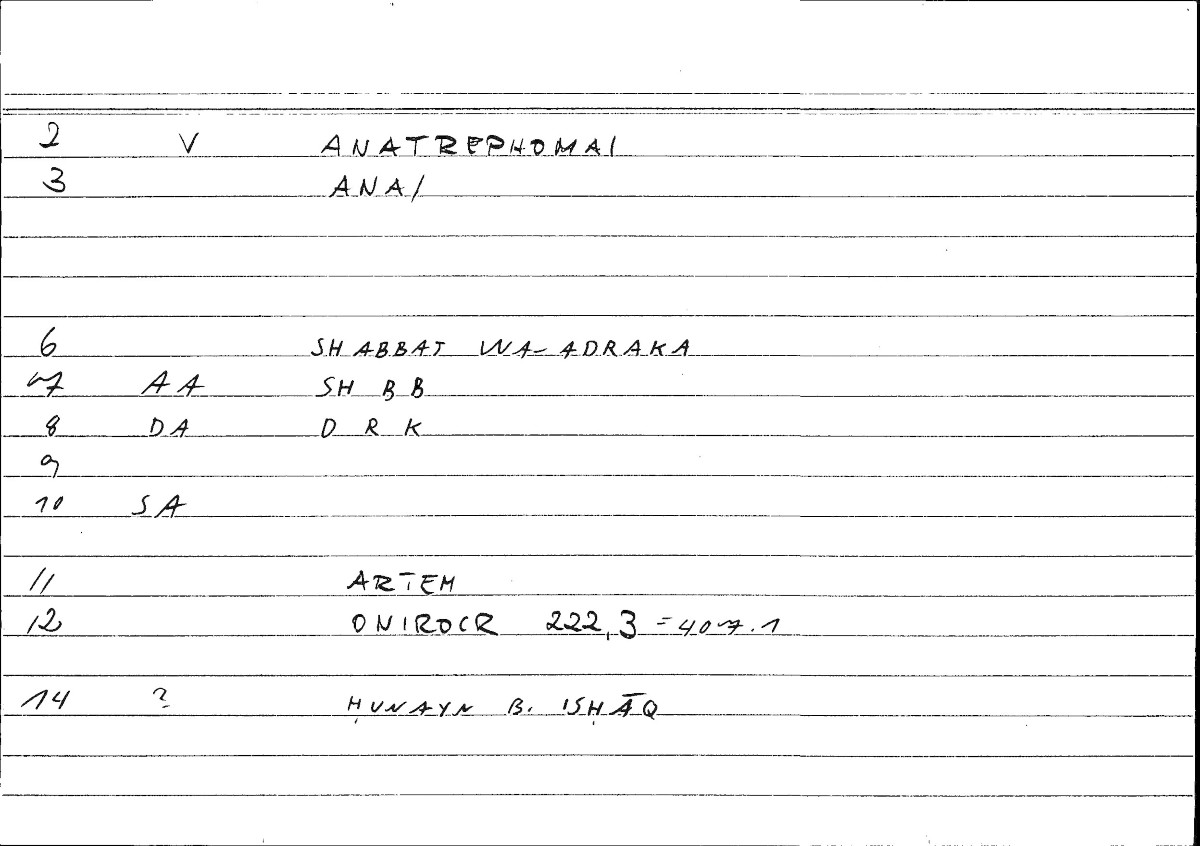 2 V ANATREPHOMAI
3 ANA/
6 SHABBAT WA-ADRAKA
7 AA SH B B
8 DA D R K
9
10 SA
11 ARTEM
12 ONIROCR 222,3 = 407.1
14 ? ḤUNAYN B. ISḤĀQ